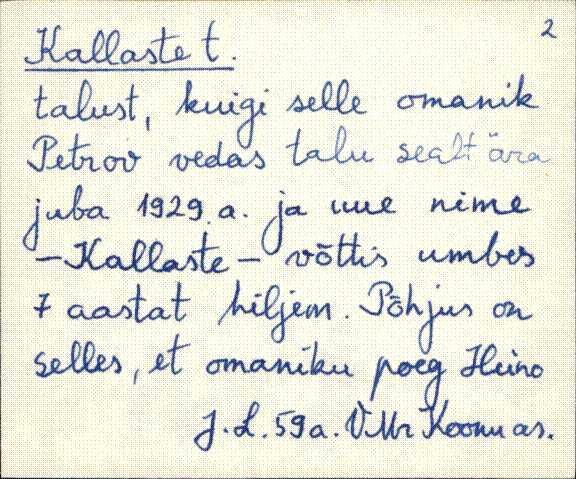 2
Kallaste t.
talust, kuigi selle omanik
Petrov vedas talu sealt ära
juba 1929.a. ja uue nime
– Kallaste – võttis umbes
7 aastat hiljem. Põhjus on
selles, et omaniku poeg Heino
J. L. 59 a. VMr Koonu as.